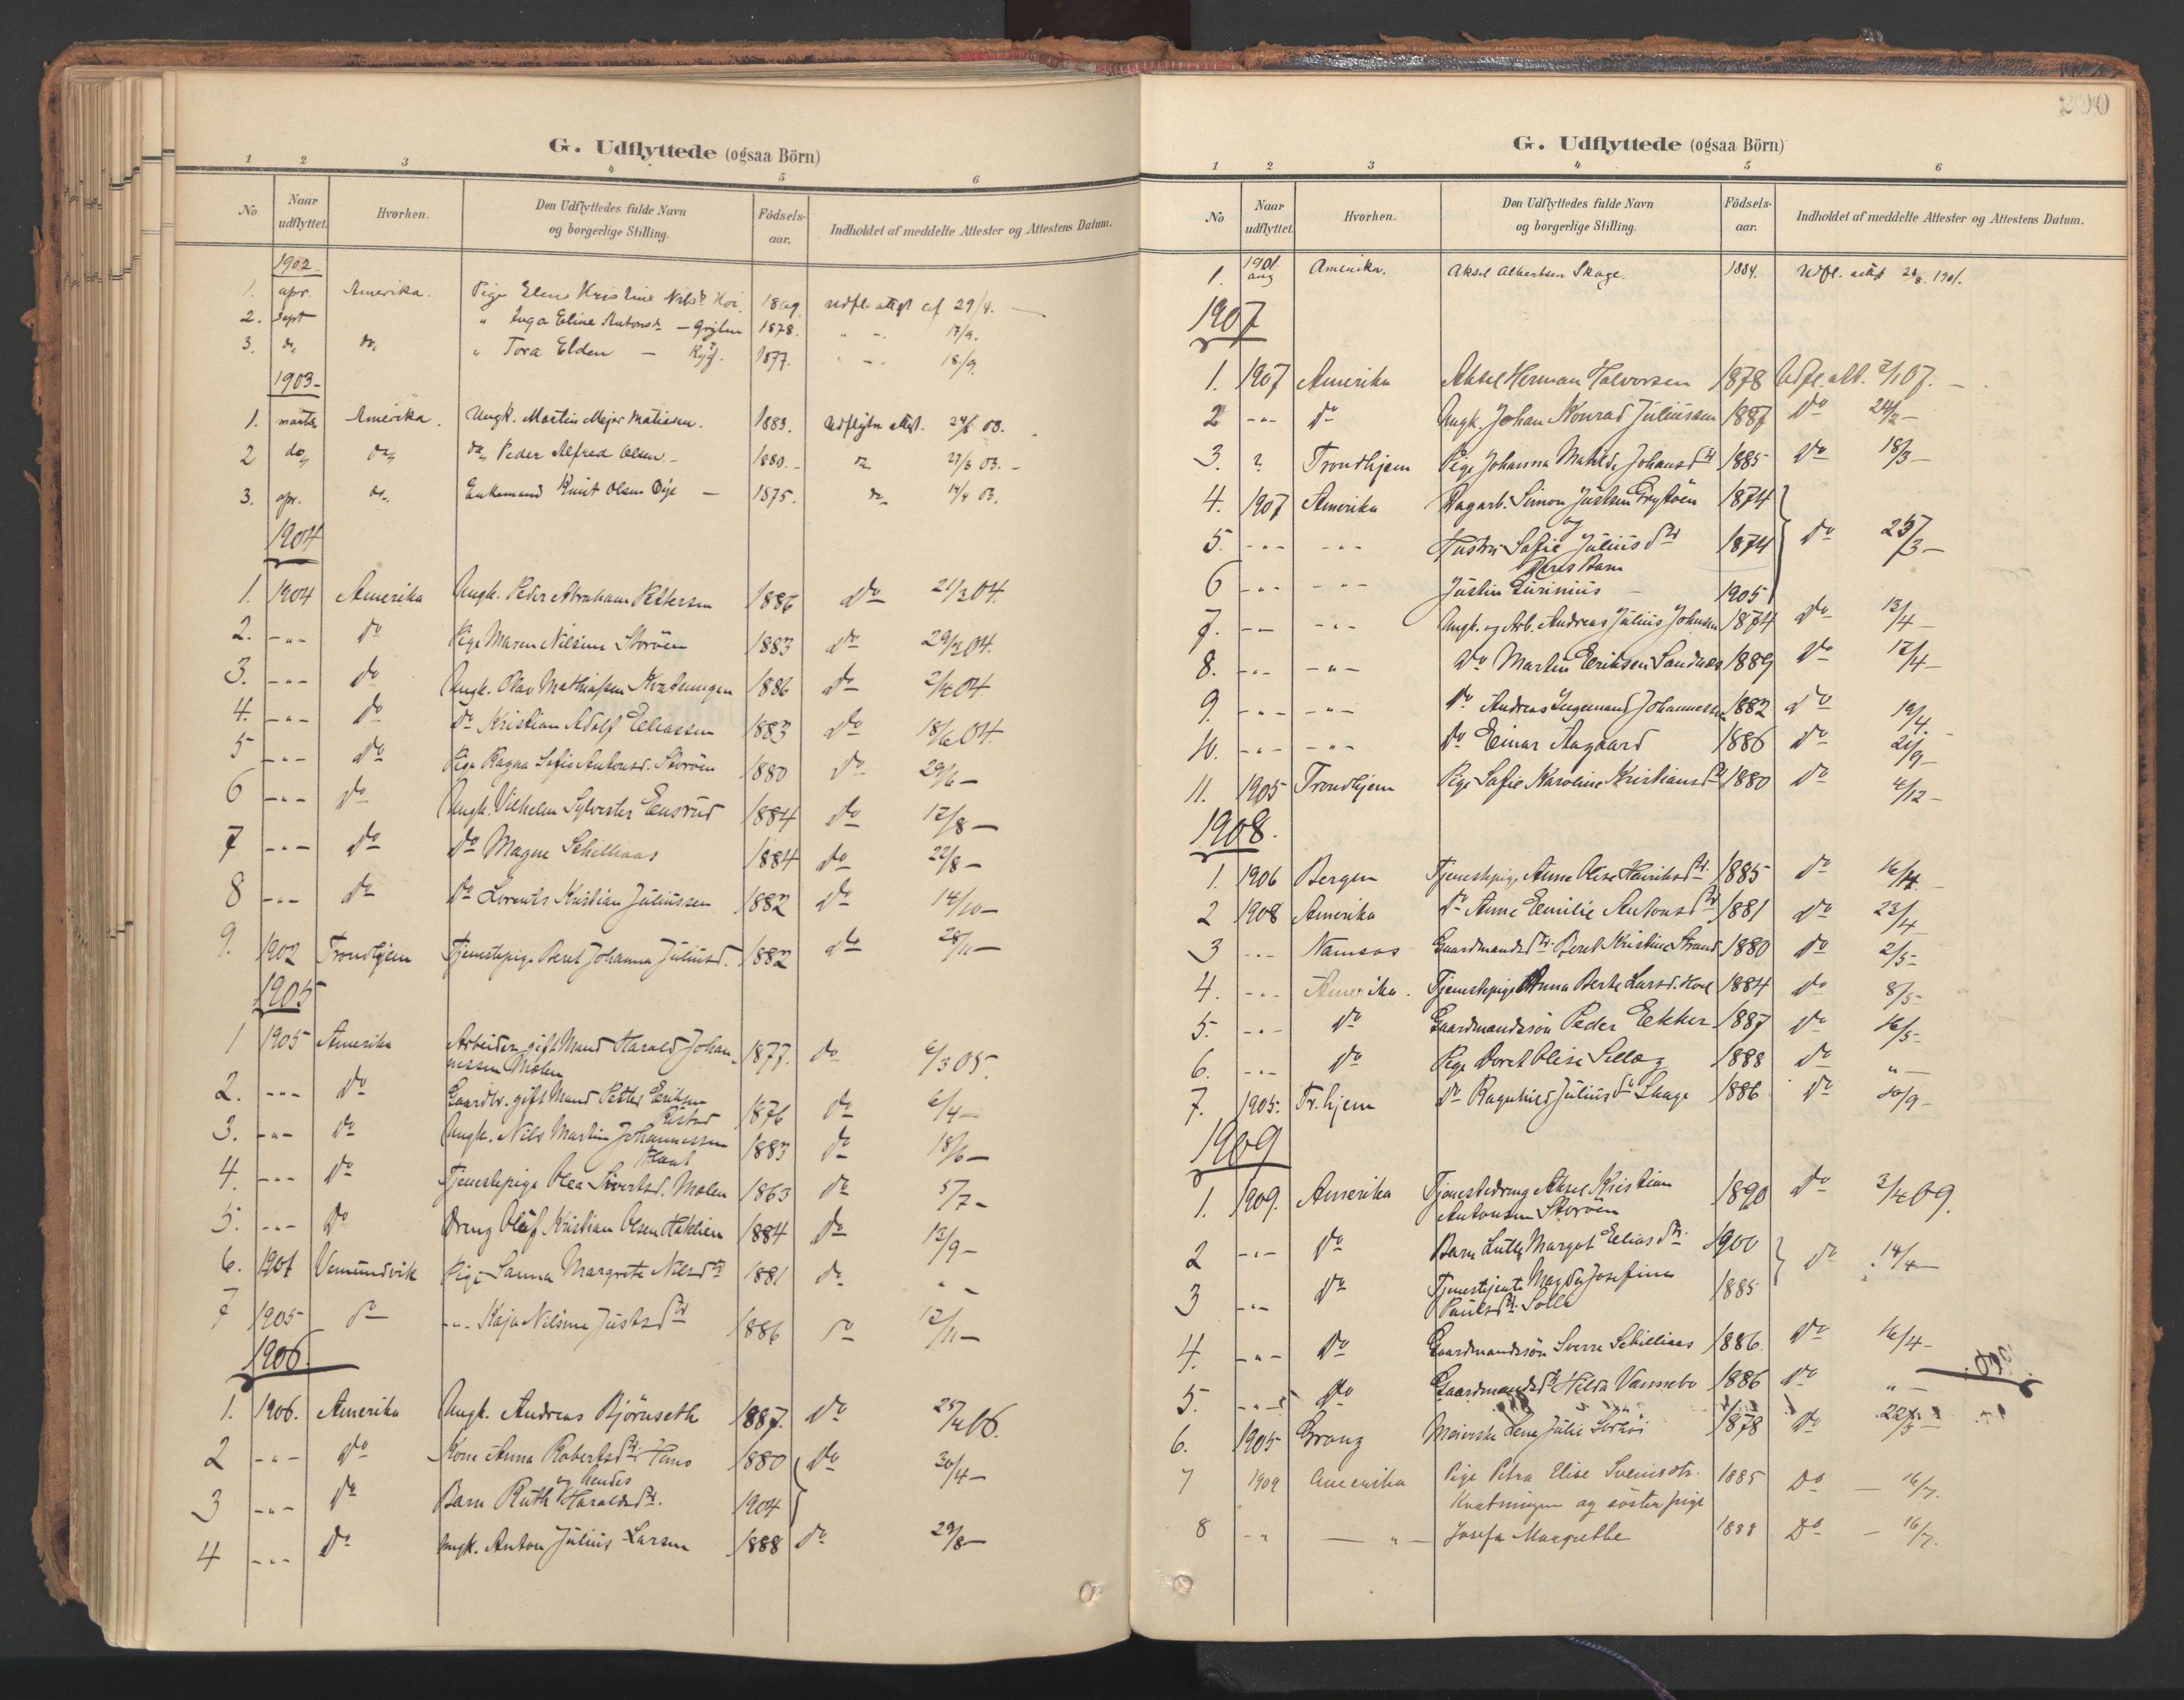 G. Udflyttede (ogsaa Börn)
1 2 3 4 5 6
No Naar udflyttet. Hvorhen. Den Udflyttedes fulde Navn og borgerlige Stilling. Födsels-aar. Indholdet af meddelte Attester og Attestens Datum.
1902.
1. apr. Amerika. Pige Elen Kristine Nilsdr 1869 udfl. attest af 29/4. —
2. Sept " Inga Eline Antonsdr — 1878. " - 17/9.
3. do do " Tora Elden — 1877. " - 18/9
1903-
1. marts Amerika. Ungk. Martin Mejer Matiesen. 1883. Udflytn attest. 03.
2 do do do Peder Alfred Olsen. - 1880. - do 27/3 03. -
3. apr. do Enkemand Knut Olsen Öie — 1875. do 14/4 03.
1904
1. 1904 Amerika Ungk. Peder Abraham Pettersen 1886 do 21/3 04.
2. - " - do Pige Maren Nilsine Storöen 1883 do 29/3 04.
3. - " - do Ungk. Olav Mathiassen Kvatningen 1886 do 2/4 04.
4. - " - do do Kristian Adolf Eliassen 1883 do 18/6 04.
5 - " - do Pige Ragna Sofie Antonsd. Storöen 1880 do 29/6 —
6 - " - do Ungk. Vilhelm Sylvester Ensrud 1884 do 12/8 —
7 - " - do do Magne Schillaas 1884 do 22/8 —
8 - " - do do Lorents Kristian Juliussen 1882 do 14/10 —
9. 1902 Trondhjem Tjenestepige Beret Johanna Juliusd. 1882 do 28/11 —
1905
1 1905 Amerika Arbeider, gift Mand Harald Johan-
nessen Molen 1877. do 6/3 05.
2. - " - do Gaardbr. gift Mand Petter Eriksen
Ristad 1876 do 6/4 —
3. - " - do Ungk. Nils Martin Johannessen
1883 do 18/6 —
4. - " - do Tjenestepige Olea Sivertsd. Molen 1863 do 5/7 —
5. - " - do Dreng Olaf Kristian Olsen 1884 do 13/9 —
6. 1901 Vemundvik Pige Sanna Margrete Nilsdtr 1881 do " -
7 1905 do - " - Kaja Nilsine Justsdtr 1886 do 12/11 —
1906.
1. 1906. Amerika Ungk. Andreas Björnseth 1887. do 25/4 06.
2 - " - do Kone Anna Robertsdtr Hans 1880 do 30/4 —
og hendes
3 - " - do Barn Ruth Haraldsdtr. 1904
4 - " - do Ungk. Anton Julius Larsen 1888 do 29/8 —
290
G. Udflyttede (ogsaa Börn)
1 2 3 4 5 6
No Naar udflyttet. Hvorhen. Den Udflyttedes fulde Navn og borgerlige Stilling. Födsels-aar. Indholdet af meddelte Attester og Attestens Datum.
1. 1901. aug Amerika. Aksel Albertsen Skage. 1884. Udfl. attest 1901.
1907
1. 1907 Amerika Aksel Herman Halvorsen 1878 Udfl. att. 2/1 07. —
2 - " - do Ungk. Johan Konrad Juliussen 1887 do 24/2 —
3. ? Trondhjem Pige Johanna Matilde Johansdtr 1885 do 18/3 —
4. 1907 Amerika Dagarb. Simon Justsen 1874
og
5. - " - - " - Hustru Sofie Juliusdtr 1874 do 25/3 —
deres Barn
6 - " - - " - Justin — 1905
7. - " - - " - Ungk. og Arb. Andreas Julius Johnsen 1874 do 13/4 —
8. - " - - " - do Martin Eriksen Sandnes 1889 do 17/4 —
9. - " - - " - do Andreas Ingemand Johannessen 1882 do 19/4.
10. - " - - " - do Einar Aagaard 1886 do 21/9 —
11. 1905 Trondhjem Pige Sofie Karoline Kristiansdtr 1880 do 4/12 —
1908.
1. 1906 Bergen Tjenestepige Anne Olise Henriksdtr. 1885 do 14 —
2 1908 Amerika do Anne Emilie Antonsdtr 1881 do 23/4 —
3 - " - Namsos Gaardmandsdtr. Beret Kristine Strand 1880 do 2/5 —
4. - " - Amerika. Tjenestepige Anna Berte Larsd. Hovl 1884 do 8/5 —
5. - " - do Gaardmandssön Peder Ekker 1887 do 16/5 —
6. - " - do Pige Doret Olise Selleg 1888 do " —
7. 1905. Tr.hjem do Ragnhild Juliusdtr Skage 1886 do 20/9 —
1909
1. 1909. Amerika Tjenestedreng Aksel Kristian
Antonsen Storöen 1890 do 3/4 09.
2 - " - do Barn Margot Eliasdtr. 1900 do 14/4 —
3 - " - do Tjenestejente Magda Josefine
Paulsdtr. Solli 1885
4. - " - do Gaardmandssön Sverre Schillaas 1886. do 16/4 —
5. - " - do Gaardmandsdtr Hilda Vannebo 1886 do " —
6. 1905 Grong Meierske Lene Julie 1878 do 22/5 —
7 1909 Amerika Pige Petra Elise Sveinsdtr. 1885 Do — 16/7.
Kvatningen og söster pige
8 - " — " — Josefa Margrethe 1888 Do — 16/7.